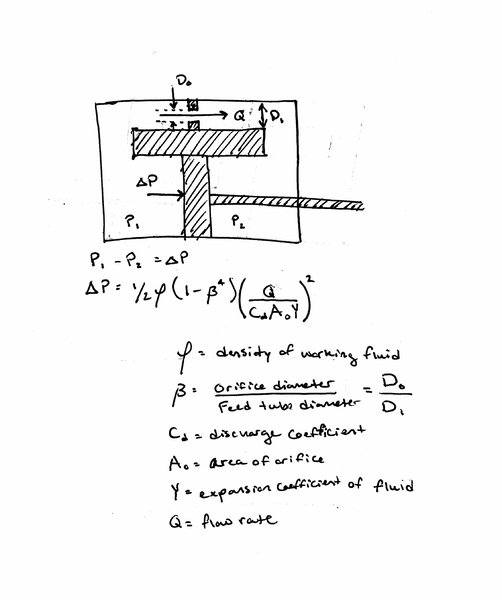 D₀
Q
D₁
ΔP
P₁
P₂
P₁ - P₂ = ΔP
ΔP = 1/2 φ (1-β⁴) (Q / C_d A₀ Y)²
φ = density of working fluid
β = Orifice diameter / Feed tube diameter = D₀ / D₁
C_d = discharge coefficient
A₀ = area of orifice
Y = expansion coefficient of fluid
Q = flow rate